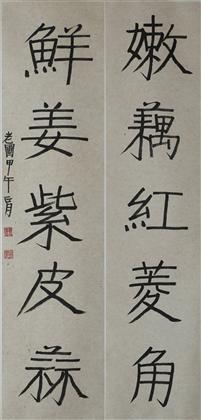 嫩藕紅菱角
鮮姜紫皮蒜
甲午